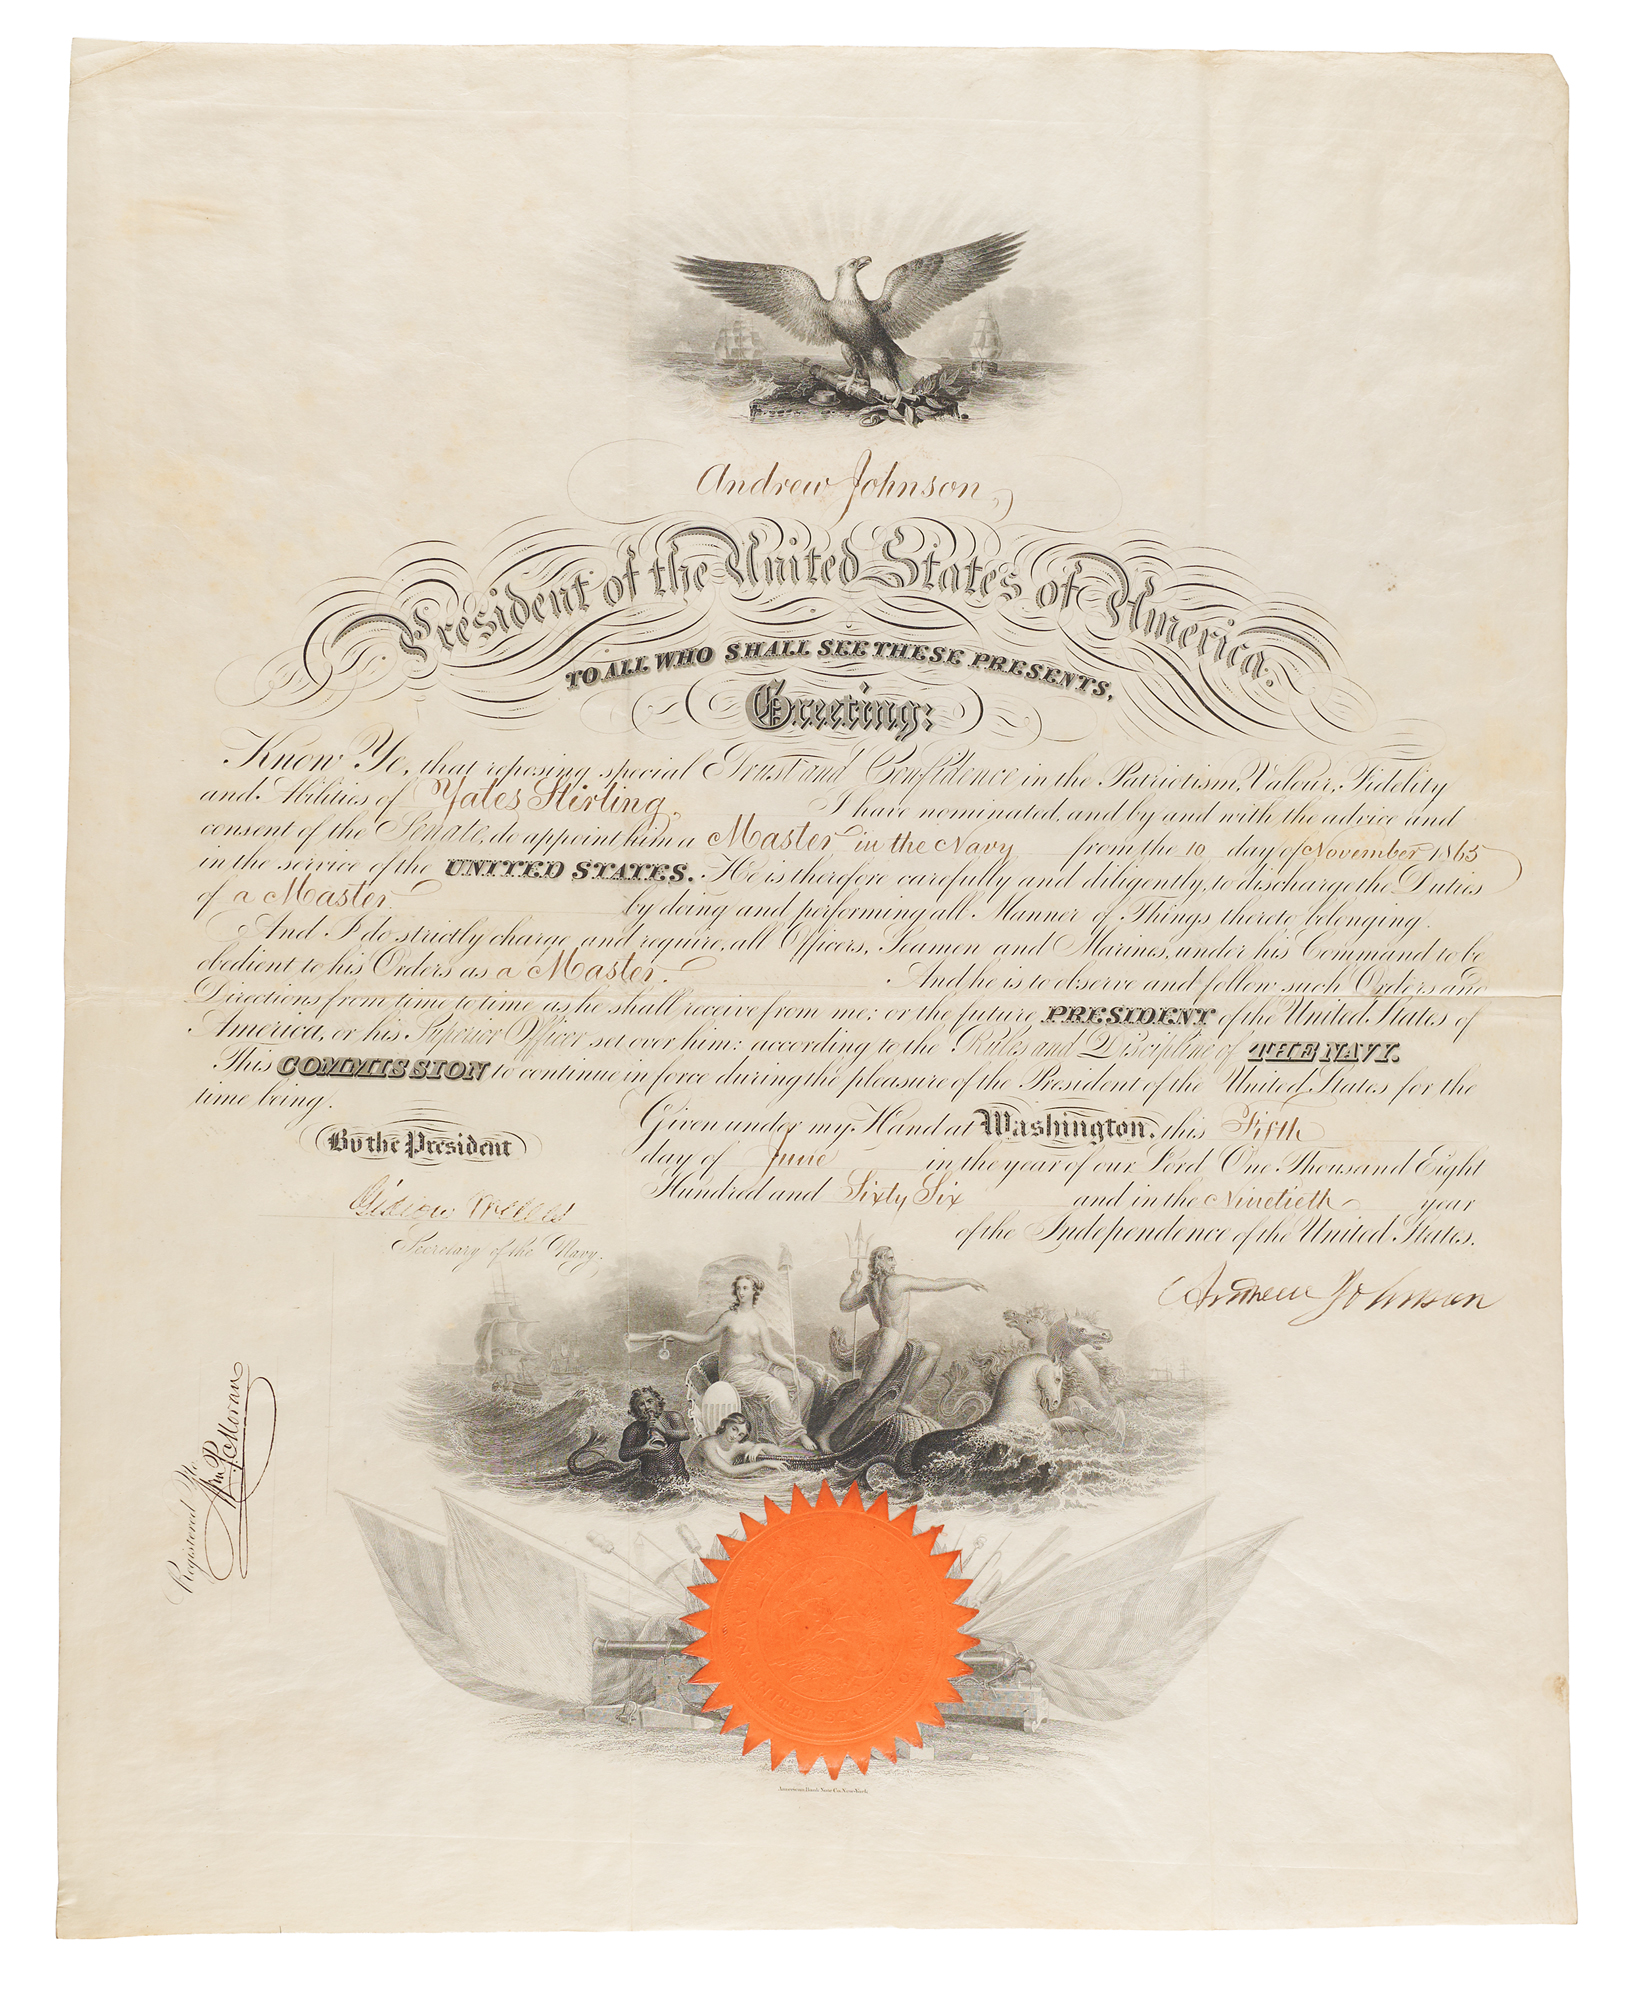 Andrew Johnson,
President of the United States of America.
TO ALL WHO SHALL SEE THESE PRESENTS,
Greeting:
Know Ye, that reposing special Trust and Confidence in the Patriotism, Valour, Fidelity
and Abilities of Yates Stirling, I have nominated, and by and with the advice and
consent of the Senate, do appoint him a Master in the Navy from the 10 day of November 1865
in the service of the UNITED STATES. He is therefore carefully and diligently, to discharge the Duties
of a Master by doing and performing all Manner of Things thereto belonging.
And I do strictly charge, and require, all Officers, Seamen and Marines, under his Command to be
obedient to his Orders as a Master. And he is to observe and follow such Orders and
Directions from time to time as he shall receive from me; or the future PRESIDENT of the United States of
America, or his Superior Officer set over him: according to the Rules and Discipline of THE NAVY.
This COMMISSION to continue in force during the pleasure of the President of the United States for the
time being.
Given under my Hand at Washington, this Fifth
By the President
day of June in the year of our Lord One Thousand Eight
Hundred and Sixty Six and in the Ninetieth year
Gideon Welles
of the Independence of the United States.
Secretary of the Navy.
Andrew Johnson
Registered No.
Wm P. Moran
American Bank Note Co. New-York.